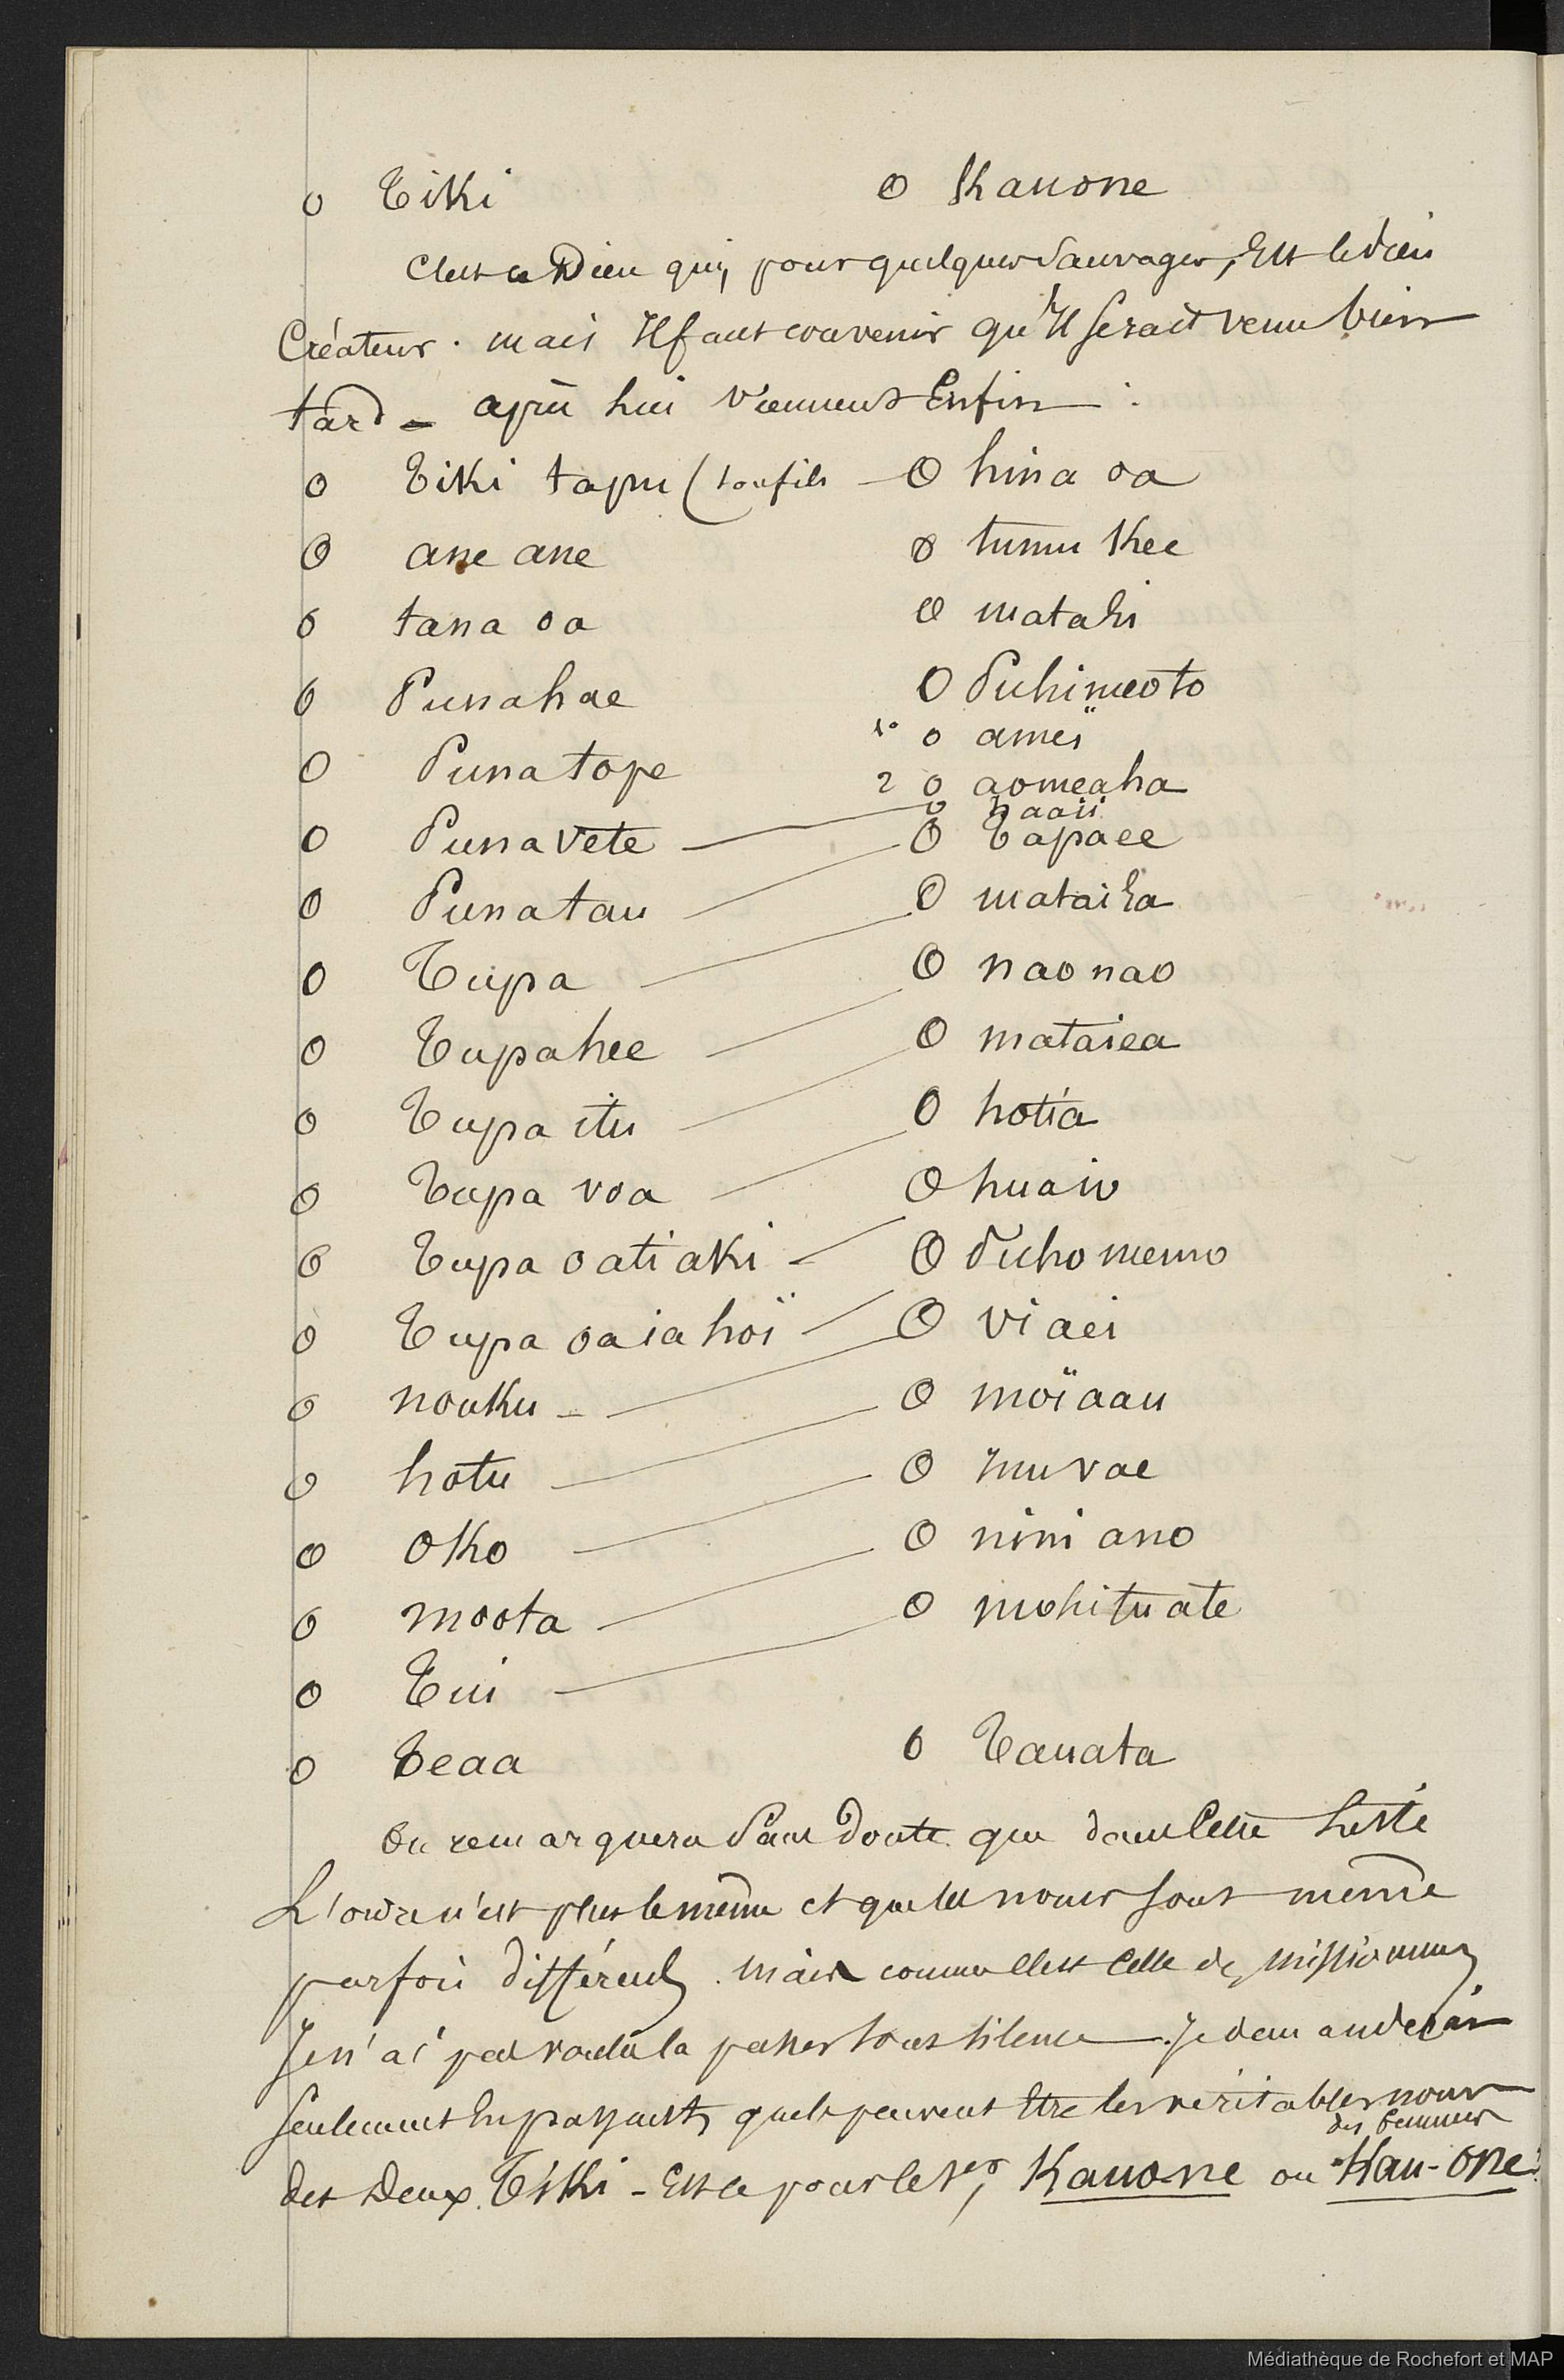 o Tiki o Kauone
C'est ce Dieu qui, pour quelques Sauvages, Est le dieu
Créateur. mais Il faut convenir qu'Il serait venu bien
tard - après lui viennent Enfin :
o Tiki tapu (son fils - o hina oa
o ane ane o tumu Kee
o tana oa o matahi
o Punahae o Puhimeoto
1o o ameï
o Punatope 2 o aomeaha
o haaii
o Punavete - o Tapaee
o Punatau - o mataiha
o Tupa - o naonao
o Tupahee - o mataiea
o Tupa itu - o hotia
o Tupa voa - o huaiv
o Tupa oatiaki - o Puhomemo
o Tupa oaiahoï - o viaei
o nouku - o moïaau
o hotu - o muvae
o oko - o niniano
o moota - o mohituate
o Tui -
o Teaa o Tauata
On remarquera Sans doute que dans Cette liste
L'ordre n'est plus le même et que les noms sont même
parfois différents. mais comme c'est celle des missionnaires
Je n'ai pas voulu la passer sous silence. Je demanderai
seulement En passant, quels peuvent être les véritables noms
des femmes
des Deux Tiki - Est ce pour le 1er, Kauone ou Hau-one?
Médiathèque de Rochefort et MAP